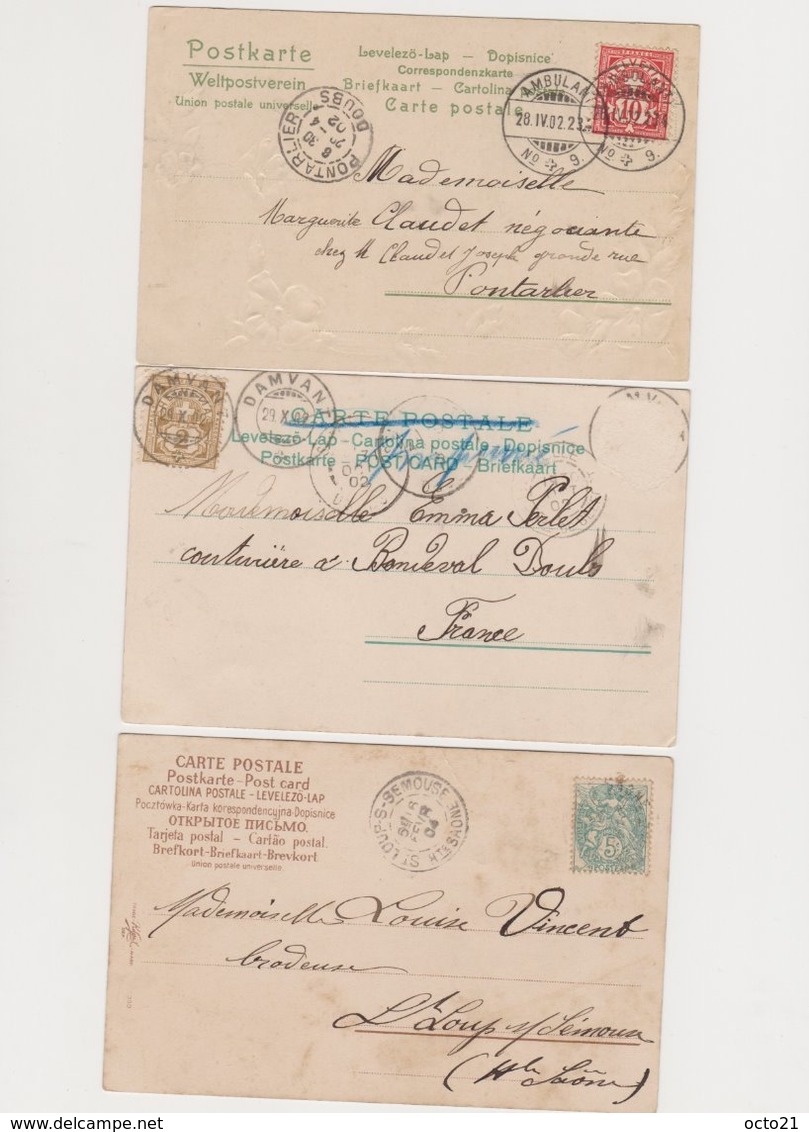 Postkarte
Weltpostverein
Union postale universelle
Levelezö-Lap – Dopisnice
Correspondenzkarte
Briefkaart – Cartolina
Carte postale
PONTARLIER
DOUBS
AMBULANT
28.IV.02.23
No 9.
10
No 9.
Mademoiselle
Marguerite Claudet négociante
chez M Claudet Joseph grande rue
Pontarlier
DAMVANT
29.X.02
2
DAMVANT
29.X.02
CARTE POSTALE
Levelezö-Lap – Cartolina postale – Dopisnice
Postkarte – POST CARD – Briefkaart
02
Mademoiselle Emma Perlet
couturière à Bondeval Doubs
France
CARTE POSTALE
Postkarte – Post card
CARTOLINA POSTALE – LEVELEZŐ-LAP
Pocztówka – Karta korespondencyjna – Dopisnice
ОТКРЫТОЕ ПИСЬМО.
Tarjeta postal – Cartão postal.
Brefkort – Briefkaart – Brevkort
Union postale universelle
ST LOUP-S-SEMOUSE
HTE SAONE
FEVR
04
5
Mademoiselle Louise Vincent
brodeuse
St Loup s/ Sémouse
(Hte Saône)
octo21